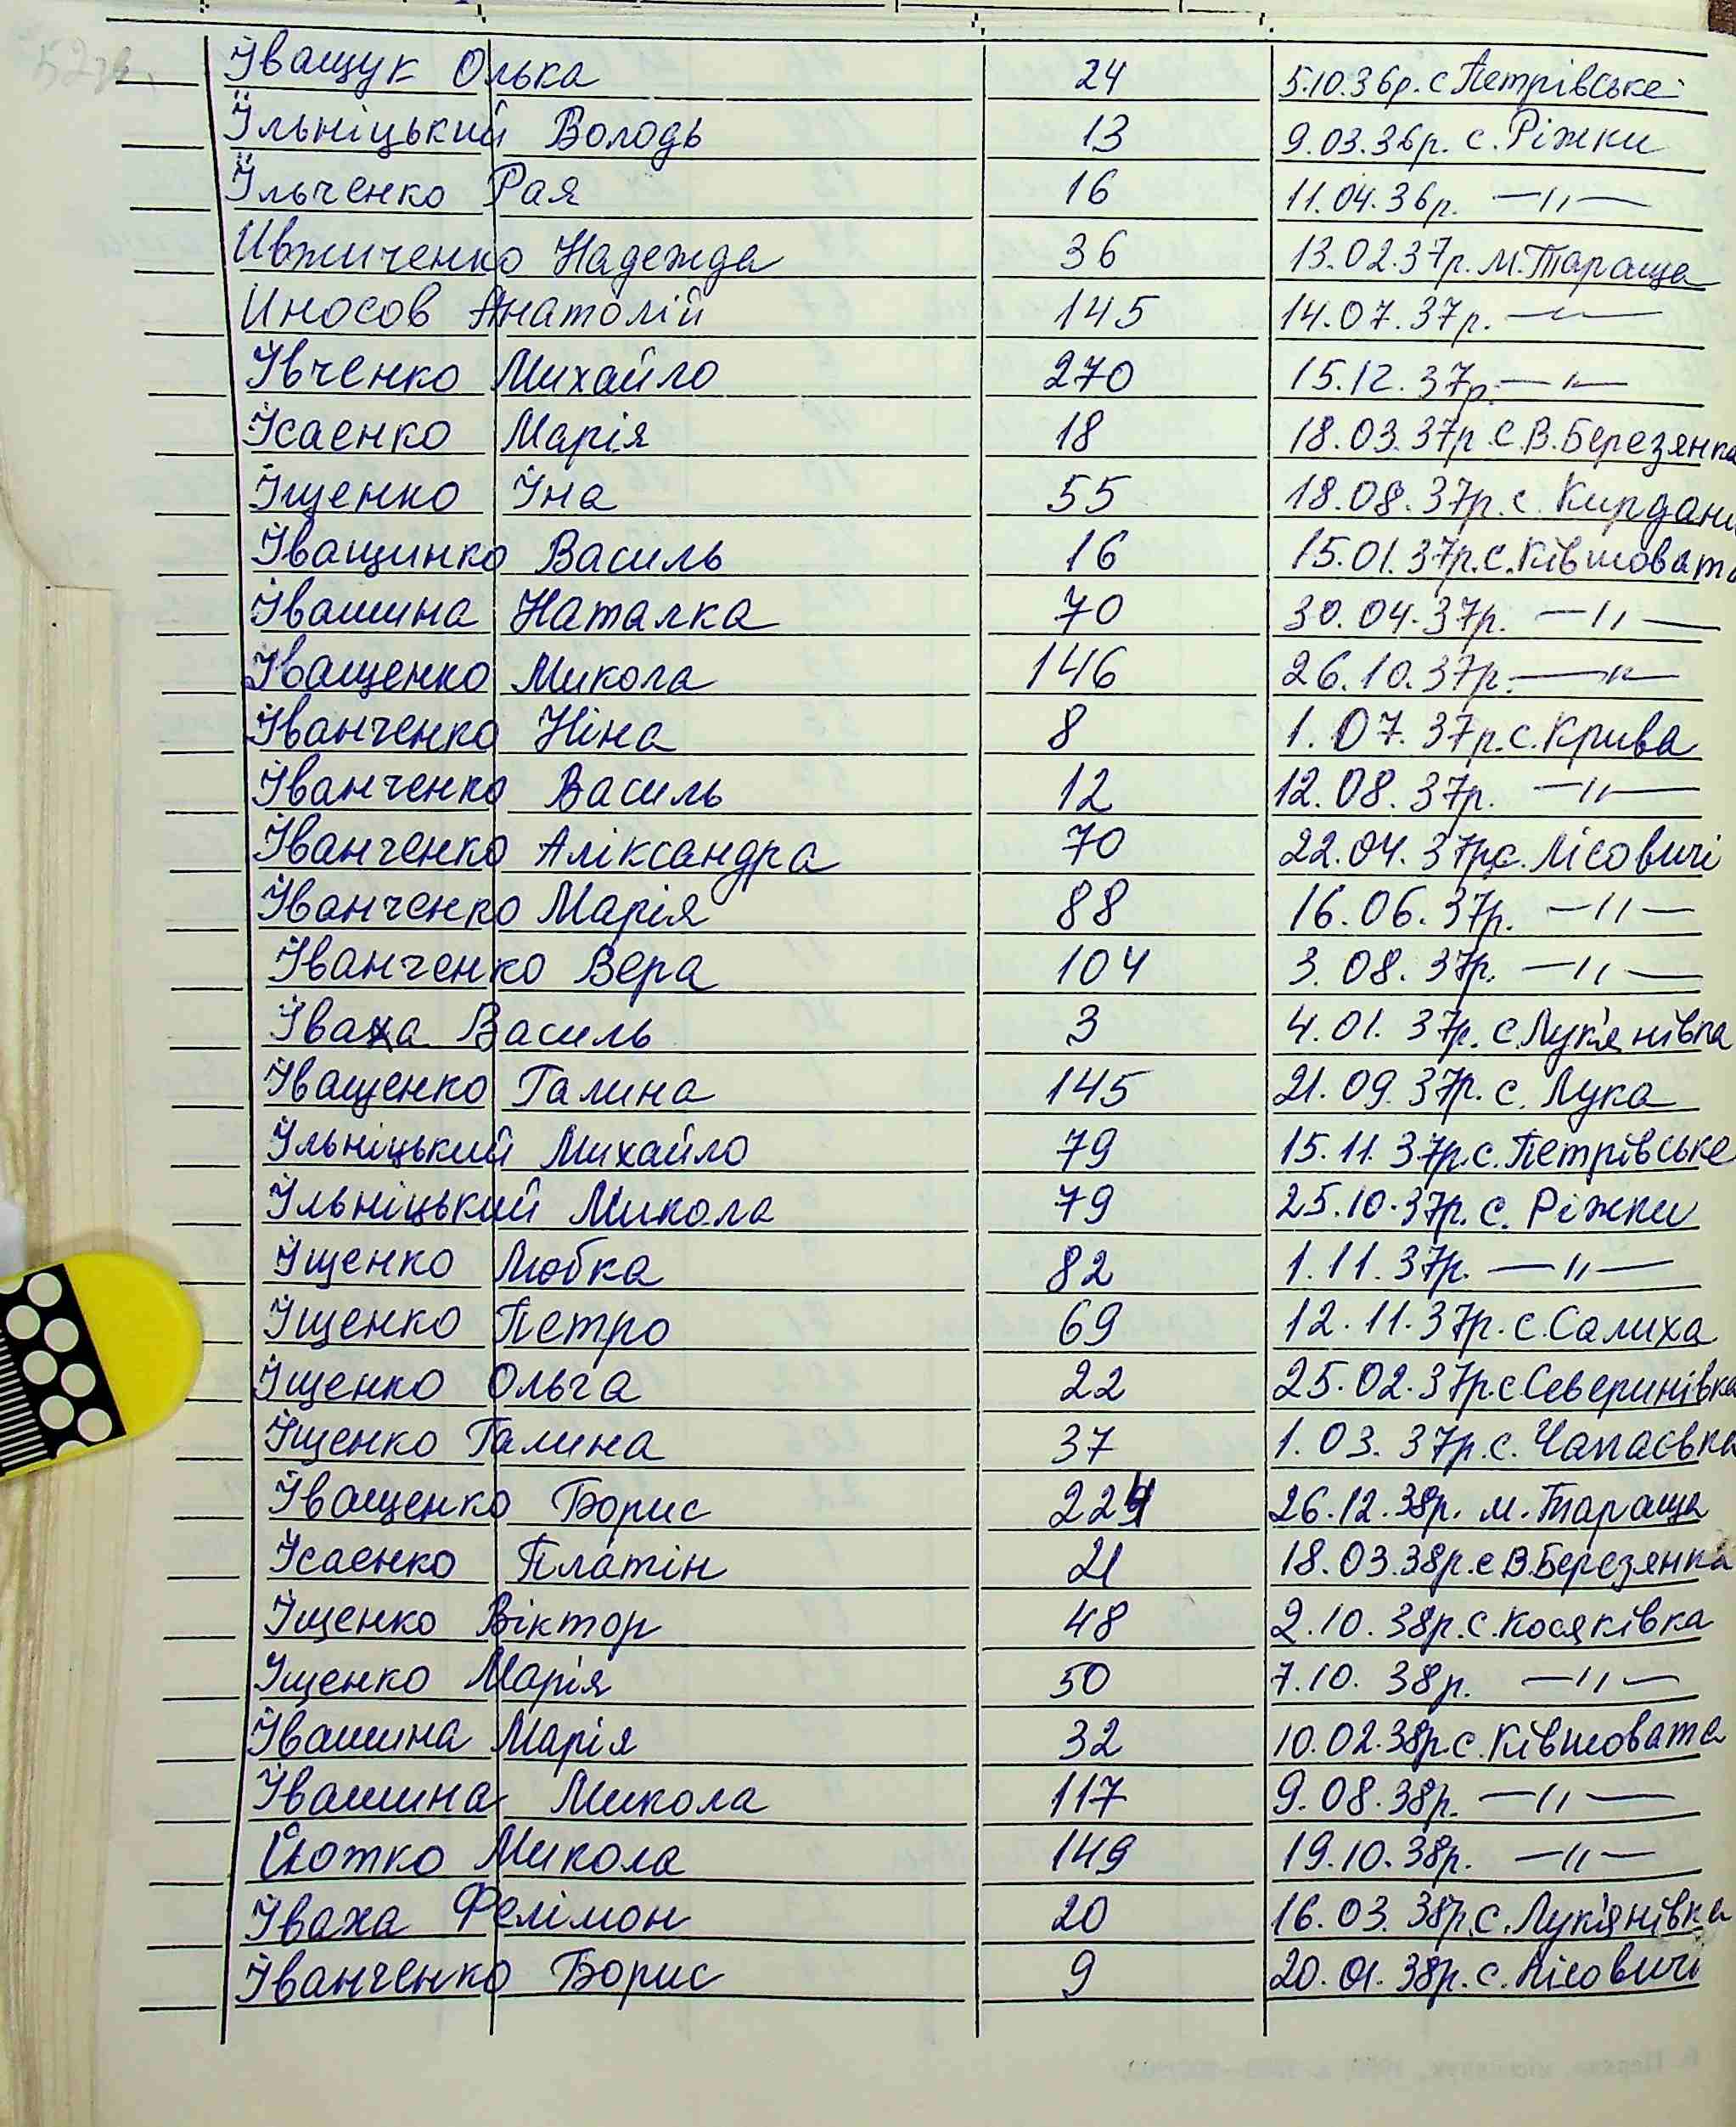 Іващук Олька 24 5.10.36р. с Петрівське
Ільніцький Володь 13 9.03.36р. с. Ріжки
Ільченко Рая 16 11.04.36р. —״—
Ивжиченко Надежда 36 13.02.37р. м. Тараща
Иносов Анатолій 145 14.07.37р. —״—
Івченко Михайло 270 15.12.37р. —״—
Ісаенко Марія 18 18.03.37р. с. В. Березянка
Іщенко Іна 55 18.08.37р. с. Кирдани
Іващинко Василь 16 15.01.37р. с. Ківшовата
Івашина Наталка 70 30.04.37р. —״—
Іващенко Микола 146 26.10.37р. —״—
Іванченко Ніна 8 1.07.37р. с. Крива
Іванченко Василь 12 12.08.37р. —״—
Іванченко Аліксандра 70 22.04.37р. с. Лісовичі
Іванченко Марія 88 16.06.37р. —״—
Іванченко Вера 104 3.08.37р. —״—
Іваха Василь 3 4.01.37р. с. Лук'янівка
Іващенко Галина 145 21.09.37р. с. Лука
Ільніцький Михайло 79 15.11.37р. с. Петрівське
Ільніцький Микола 79 25.10.37р. с. Ріжки
Іщенко Любка 82 1.11.37р. —״—
Іщенко Петро 69 12.11.37р. с. Салиха
Іщенко Ольга 22 25.02.37р. с Северинівка
Іщенко Галина 37 1.03.37р. с. Чапаєвка
Іващенко Борис 224 26.12.38р. м. Тараща
Ісаєнко Платін 21 18.03.38р. с В. Березянка
Іщенко Віктор 48 2.10.38р. с. Косяківка
Іщенко Марія 50 7.10.38р. —״—
Івашина Марія 32 10.02.38р. с. Ківшовата
Івашина Микола 117 9.08.38р. —״—
Йотко Микола 149 19.10.38р. —״—
Іваха Фелімон 20 16.03.38р. с. Лук'янівка
Іванченко Борис 9 20.01.38р. с. Лісовичі